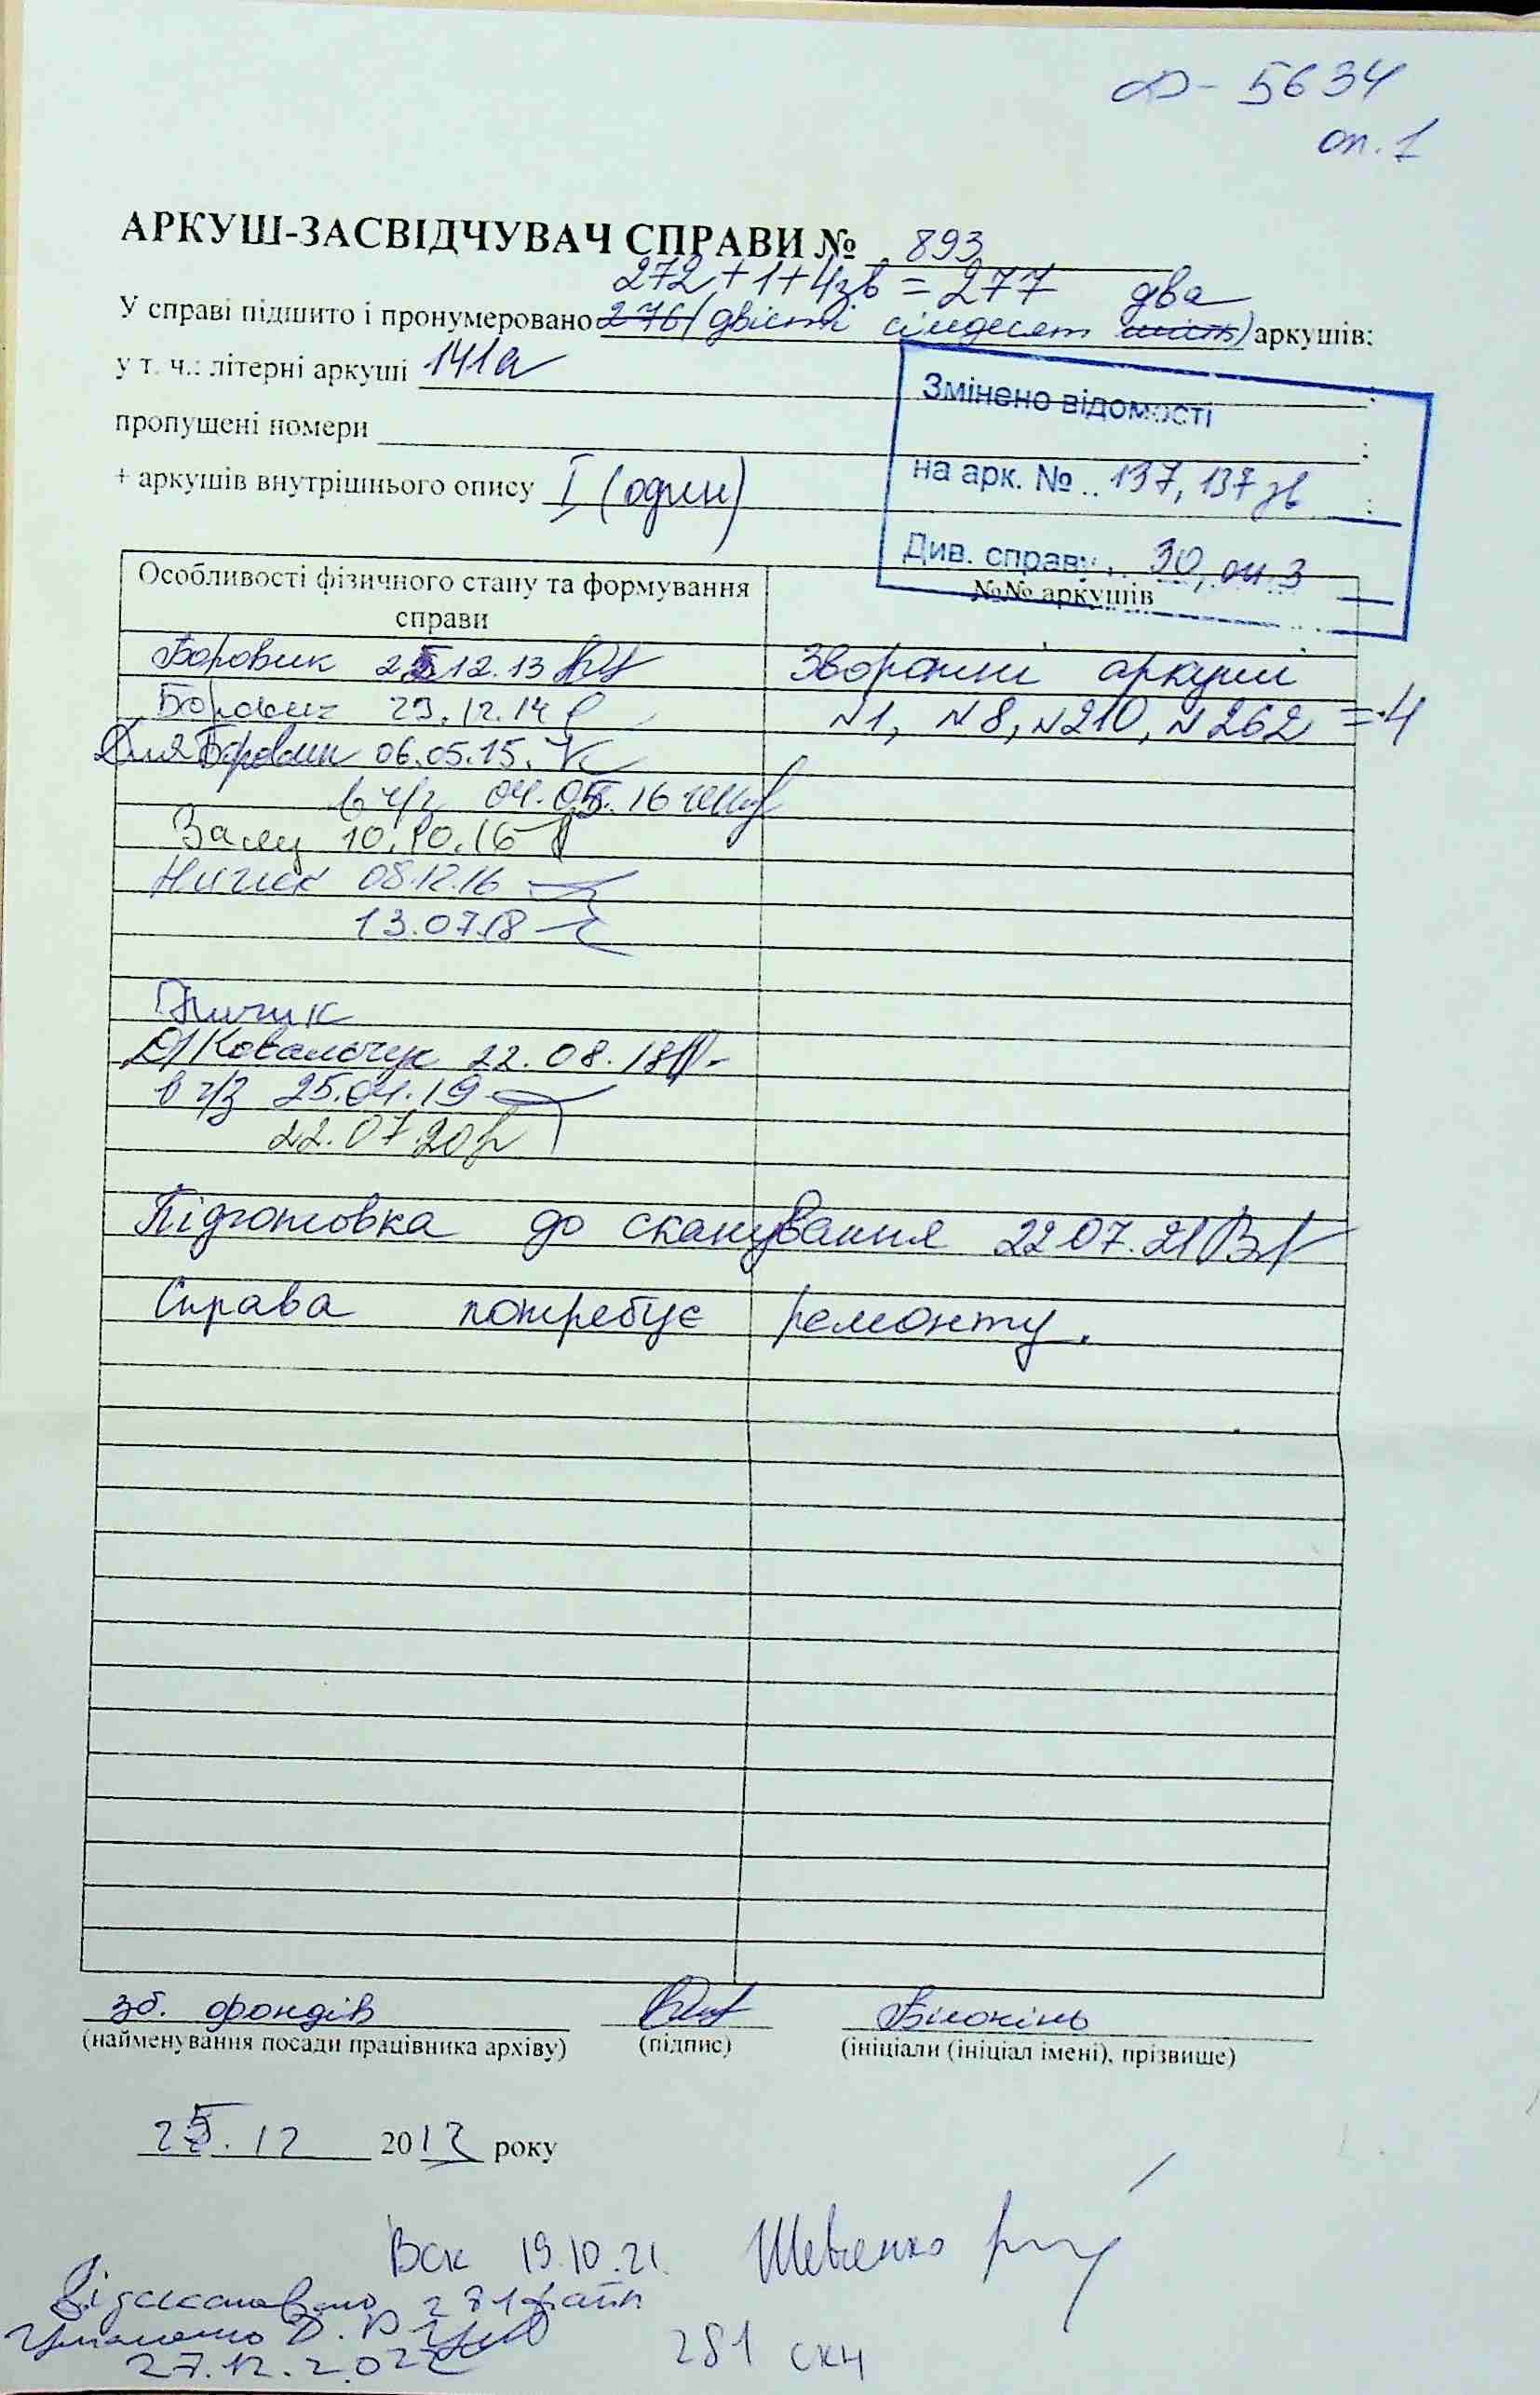 Ф- 5634
оп. 1
АРКУШ-ЗАСВІДЧУВАЧ СПРАВИ № 893
272+1+4зв = 277 два
У справі підшито і пронумеровано 276 (двісті сімдесят шість) аркушів;
у т. ч.: літерні аркуші 141а ;
пропущені номери ;
+ аркушів внутрішнього опису І (один) ;
Змінено відомості
на арк. № 137, 137 зв
Див. справу 30, оп. 3
Особливості фізичного стану та формування справи
№№ аркушів
Боровик 25.12.13
Зворотні аркуші
Боровик 29.12.14
№1, №8, №210, №262 = 4
Для Боровик 06.05.15.
в ч/з 04.05.16
Залу 10.10.16
Ничик 08.12.16
13.07.18
Ничик
Д/Ковальчук 22.08.18
в ч/з 25.04.19
22.07.20
Підготовка до сканування 22.07.21
Справа потребує ремонту.
зб. фондів
Білокінь
(найменування посади працівника архіву) (підпис) (ініціали (ініціал імені), прізвище)
25.12 2013 року
Вск 19.10.21. Шевченко
Відскановано 281 файл
Д. В.
27.12.2022
281 скн